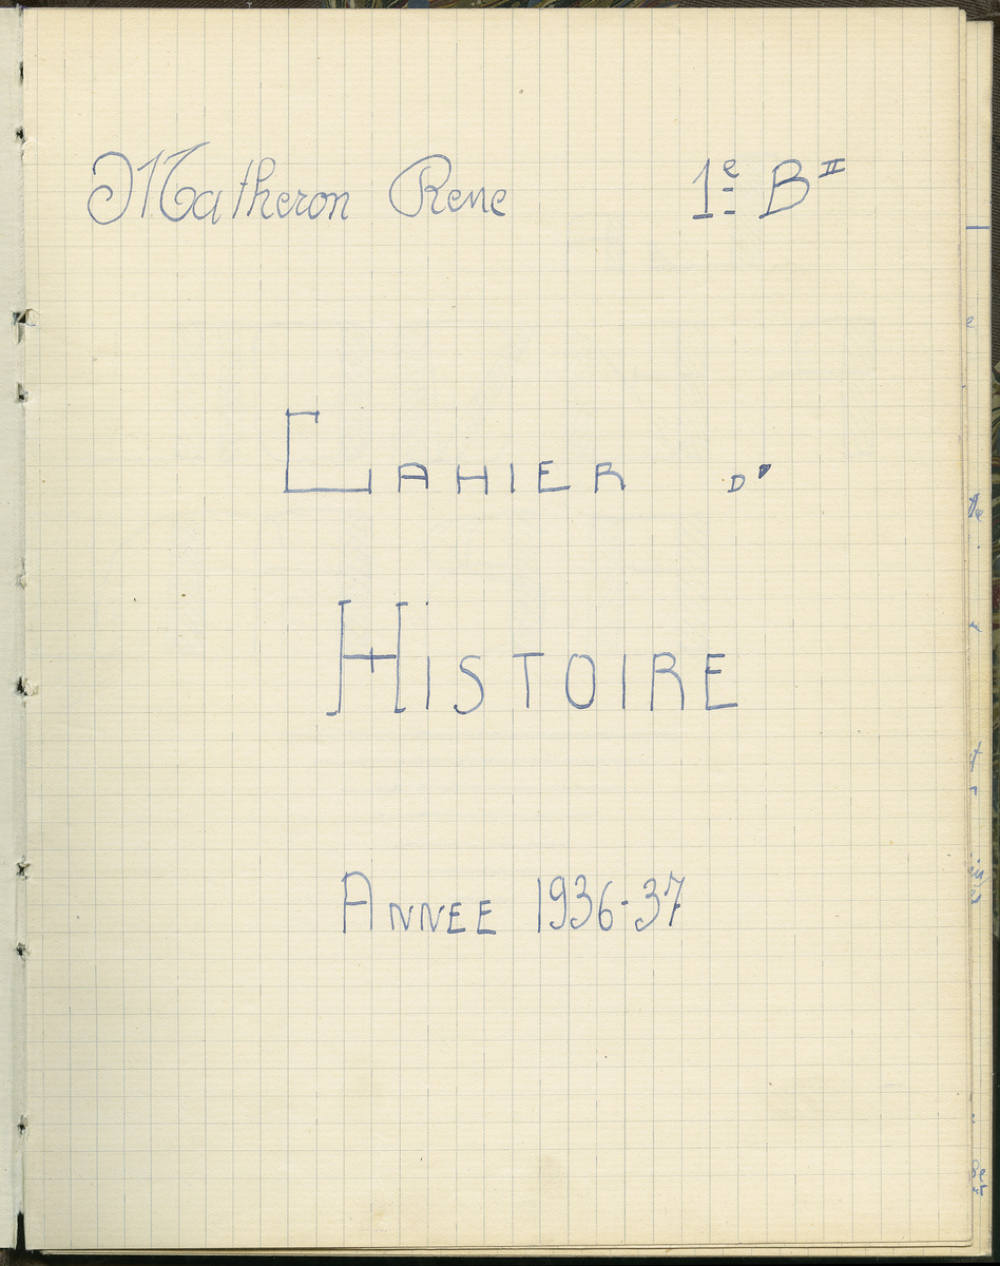 Matheron Rene 1e BII
CAHIER D'
HISTOIRE
ANNEE 1936-37